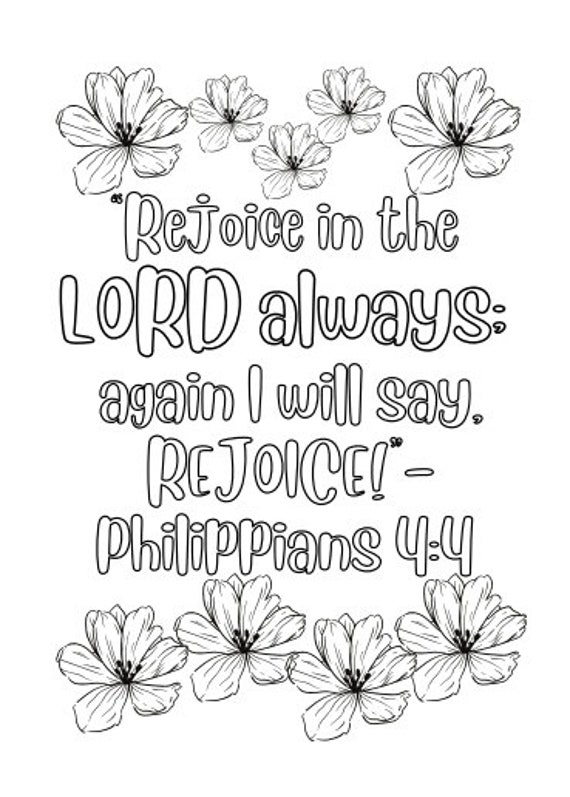 “Rejoice in the
LORD always;
again I will say,
REJOICE!”–
Philippians 4:4